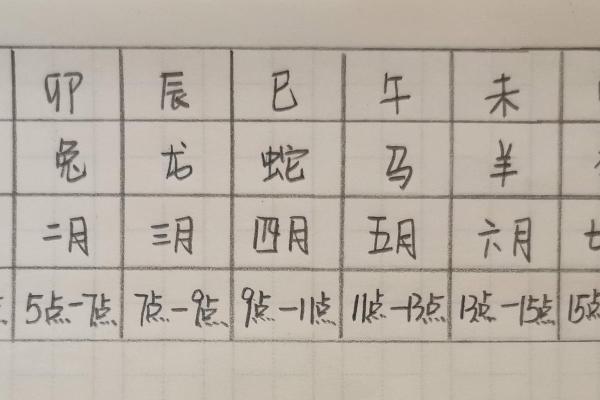 卯 辰 巳 午 未
兔 龙 蛇 马 羊
二月 三月 四月 五月 六月 七
点 5点-7点 7点-9点 9点-11点 11点-13点 13点-15点 15点